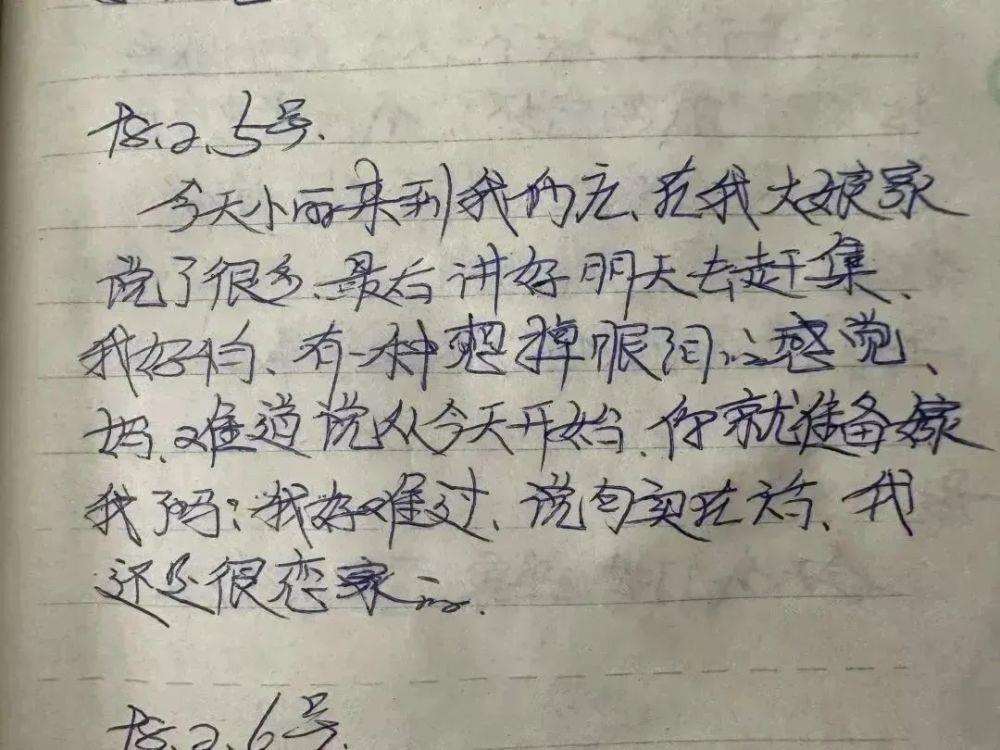 78.2.5号.
今天小丽来到我们庄、在我大娘家
说了很多、最后讲好明天去赶集、
我好怕、有一种想掉眼泪的感觉、
妈、难道说从今天开始、你就准备嫁
我了吗?我好难过、说句实在话、我
还是很恋家的.
78.2.6号.